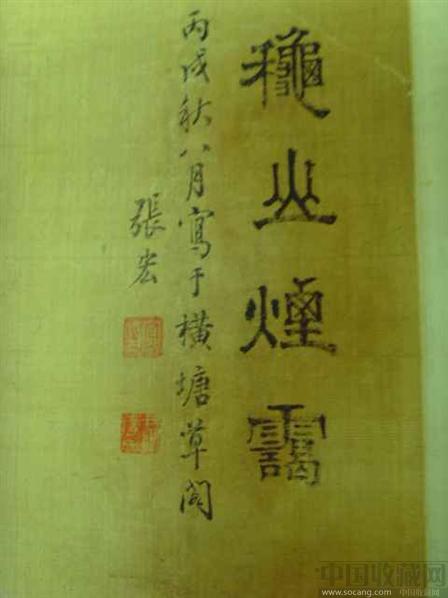 龝山煙靄
丙戌秋八月寫于橫塘草閣
張宏
中国收藏网
www.socang.com 中国收藏网